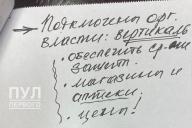 → Подключены орг.
власти: вертикаль
• обеспечить ср-ами
защит.
• магазины и
аптеки;
• цены!
ПУЛ
ПЕРВОГО